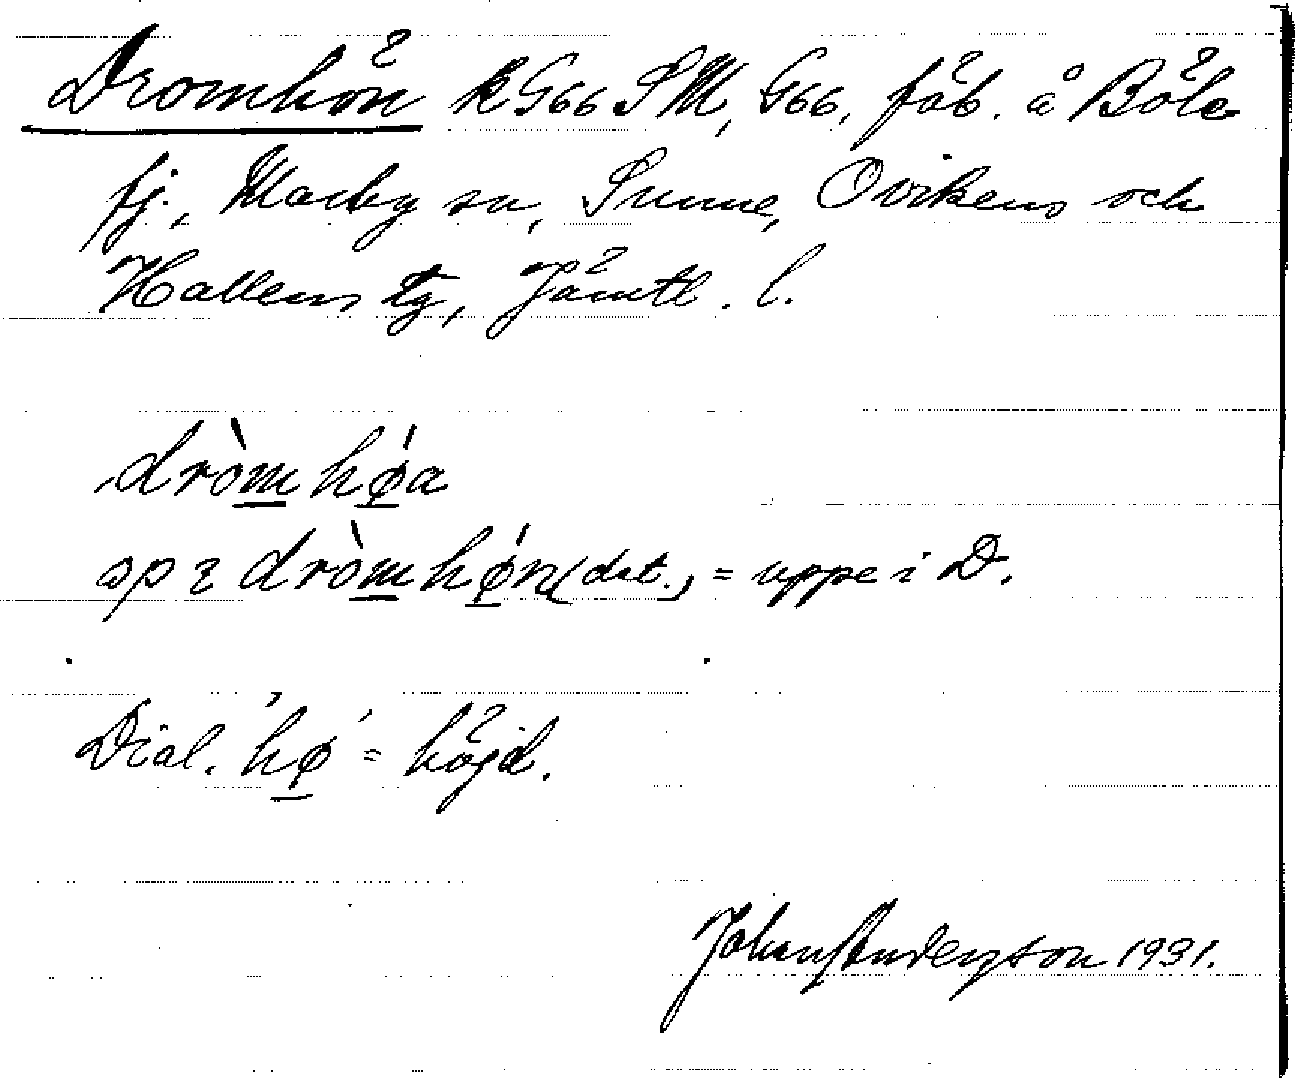 Dromhön RG66 SM, G66, fäb. å Böle
fj., Marby sn, Sunne, Ovikens och
Hallens tg, Jämtl. l.
dròm hǿa
op ɿ dròm hǿn (dat.) = uppe i D.
Dial. hø = höjd.
Johan Anderzson 1931.